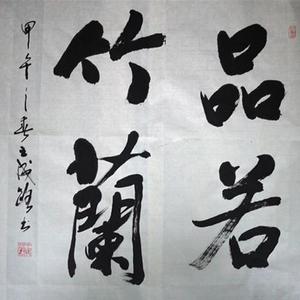 品若
竹蘭
甲午之春王成